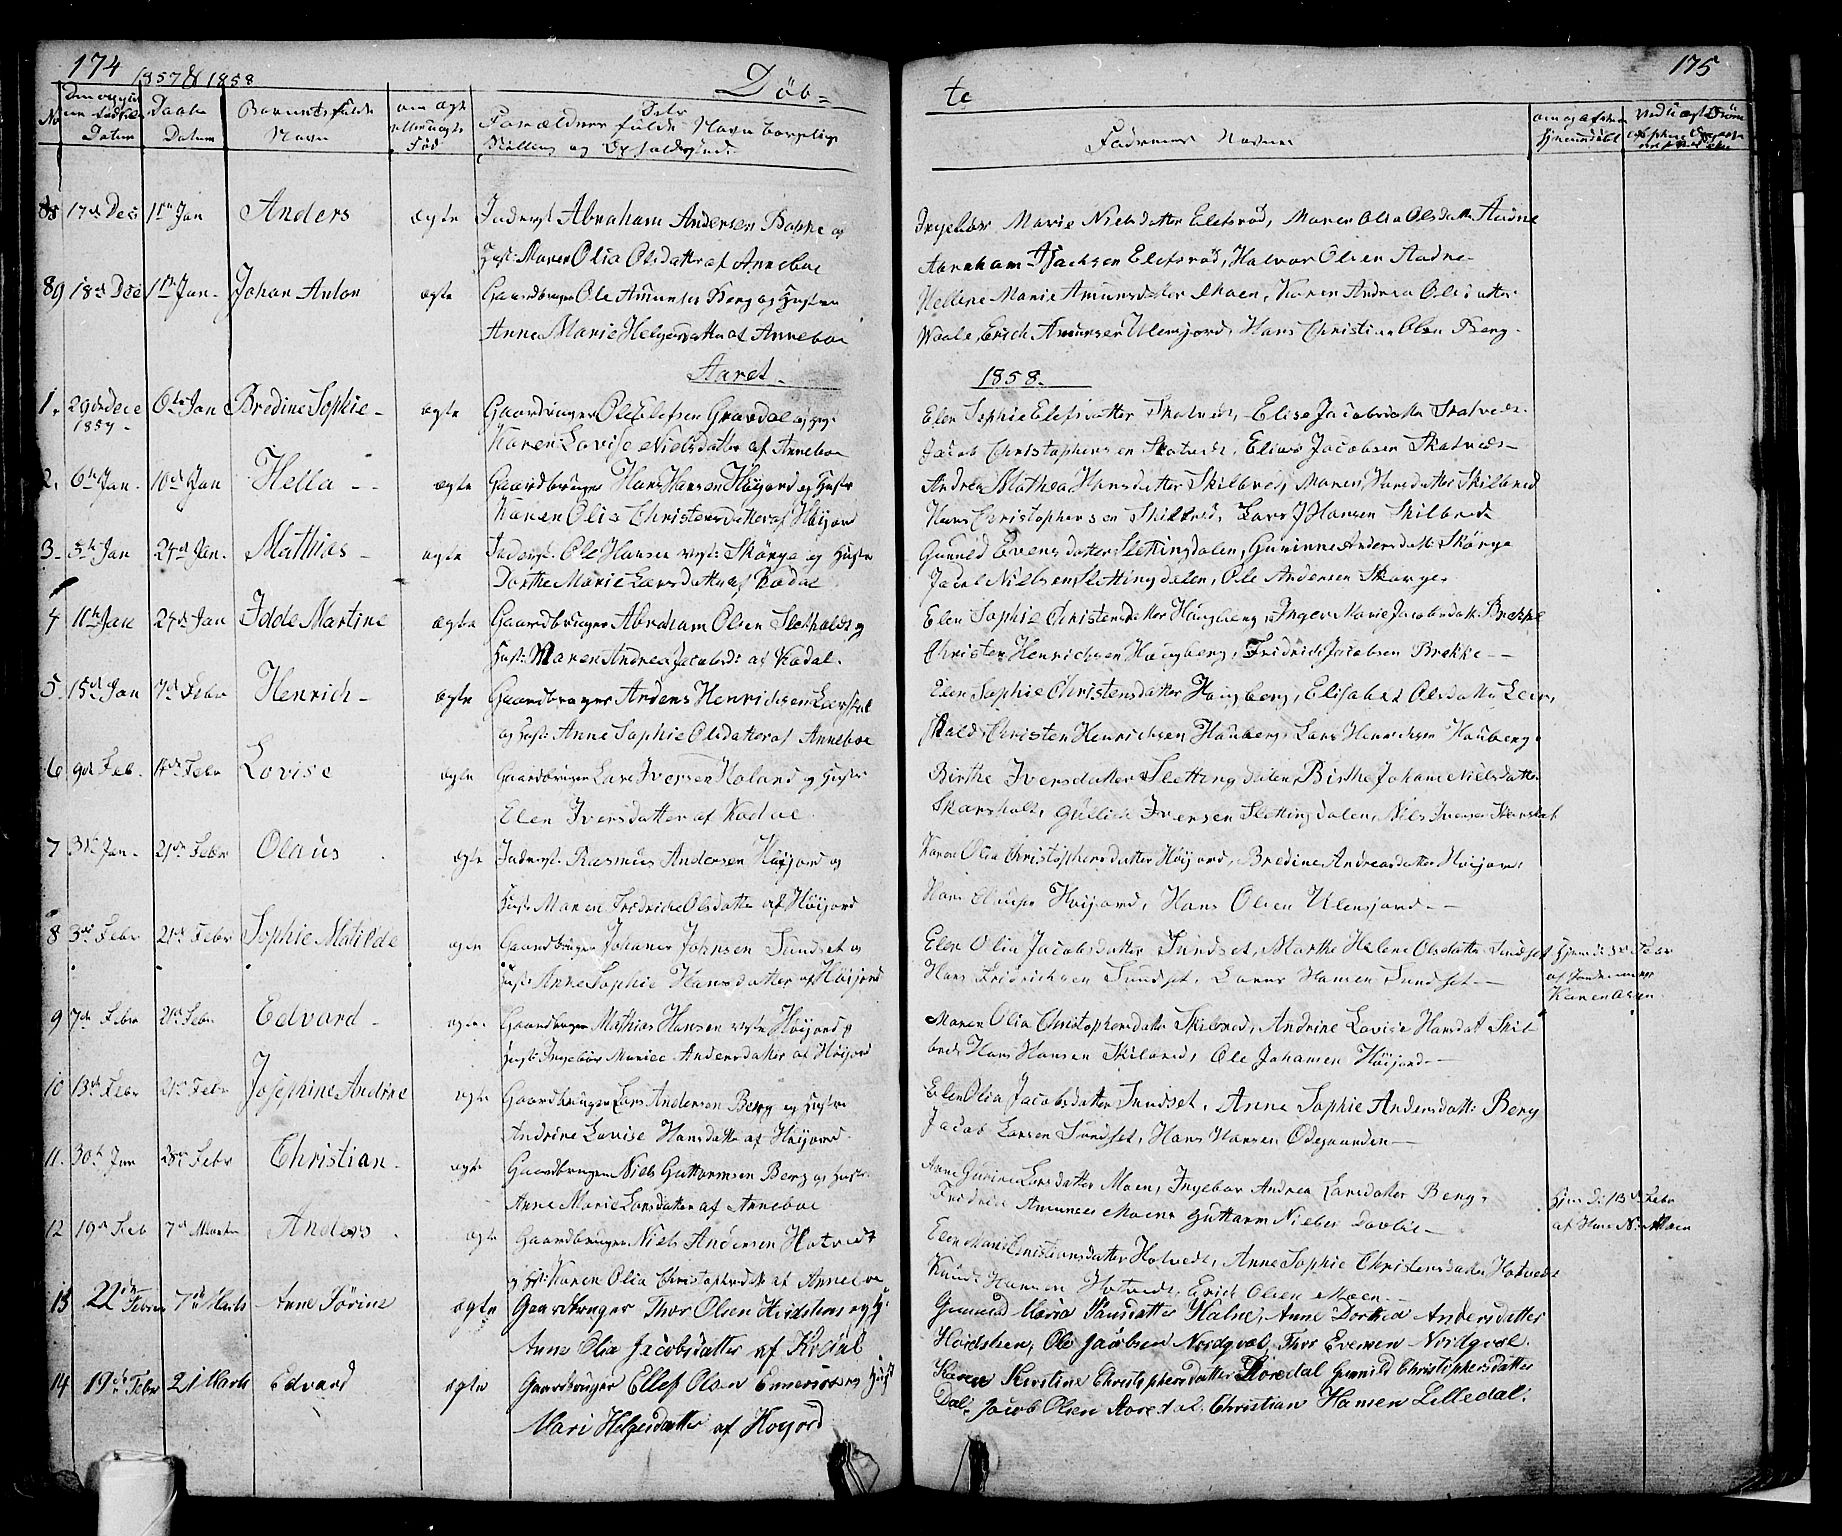 174 1857 & 1858 Døb=
te 175
No Datum Daabs Datum Barnets fulde Navn om ægte eller uægte Fød Forældrenes fulde Navn borgelige Stilling og Opholdssted.
Faderenes Navne
17de Dec 1ste Jan Anders ægte Inderst Abraham Andersen Bakke og
Hust: Maren Olia Olsdatter af Anneboe
Ingebør Marie Nielsdatter Elefsrød, Maren Olia Olsdatter
Abraham Isachsen Elefsrød, Halvor Olsen
89 18de Dec 1ste Jan. Johan Anton ægte Gaardbruger Ole Amunsen Berg og Hustru
Anne Marie Helgesdatter af Anneboe
Hellene Marie Amunsdatter Moen, Karen Andrea Olsdatter
Waale, Erich Amunsen Ulensjord, Hans Christian Olsen Berg.
Aaret 1858.
1. 29de Dece 1857 6te Jan Bredine Sophie ægte Gaardbruger Ole Elefsen Gravdal og Hus:
Karen Lovise Nielsdatter af Anneboe
Elen Sophie Elefsdatter Skatvedt, Elise Jacobsdatter Skatvedt.
Jacob Christophersen Skatvedt, Elias Jacobsen Skatvedt
2. 6te Jan. 10de Jan Hella ægte Gaardbruger Hans Hansen Høijord og Hustr
Karen Olia Christensdatter af Høijord
Andrea Mathea Hansdatter Skilbred, Maren Hansdatter Skilbred
Hans Christophersen Skilbred, Lars J Hansen Skilbred
3 5te Jan 24de Jan. Mathias ægte Inderst. Ole Hansen Skørge og Hustr
Dorthe Marie Larsdatter af Kodal
Gunild Evensdatter Slettingdalen, Gurinne Andersdatt: Skørge
Jacob Nielsen Slettingdalen, Ole Andersen Skorge.
4 11te Jan 24de Jan Idde Martine ægte Gaardbruger Abraham Olsen Sletholdt og
Hust: Maren Andrea Jacobsd: af Kodal.
Elen Sophie Christensdatter Haugberg, Inger Marie Jacobsdatt: Brekke
Christen Henrichsen Haugberg, Fridrich Jacobsen Brekke
5. 15de Jan 7de Febr Henrich ægte Gaardbruger Anders Henrichsen Leerskal
og Hust: Anne Sophie Olsdatter af Anneboe
Elen Sophie Christensdatter Haugberg, Elisabed Olsdatter Leer,
skald, Christen Henrichsen Hauberg, Lars Henrichsen Hauberg.
6 9de Feb. 14de Febr Lovise ægte Gaardbruger Lars Iversen Holand og Hustr:
Elen Iversdatter af Kodal
Birthe Iversdatter Slettingdalen, Birthe Johane Nielsdatter
Skarsholt, Gullich Iversen Slettingdalen, Niels Iversen
7 31te Jan. 21de Febr Olaus ægte Inderst: Rasmus Andersen Høijord og
Hust: Maren Fridriche Olsdatter af Høijord
Karen Olia Christophersdatter Høijord, Bredine Andreasdatter Høijord.
Hans Høijord, Hans Olsen Ulensjord
8 3de Febr 21de Febr Sophie Matilde ægte Gaardbruger Johanes Johnsen Sundset og
Hust: Anne Sophie Hansdatter af Høijord
Elen Olia Jacobsdatter Sundset, Marthe Helene Olsdatter Sundset
Hans Fridrichsen Sundset, Lars Hansen Sundset
Hjemdøbt Febr
af Jordemoder
Karen Olsen
9 7de Febr 21de Febr Edvard ægte Gaardbruger Mathias Hansen Høijord og
Hust: Ingebør Marie Andersdatter af Høijord
Maren Olia Christophersdatter Skilbred, Andrine Lovise Hansdat Skil
bred Hans Hansen Skilbred, Ole Johansen Høijord
10 13de Febr 21de Febr Josephine Andrine ægte Gaardbruger Lars Andersen Berg og Hustr
Andrine Lovise Hansdatter af Høijord
Elen Olia Jacobsdatter Sundset, Anne Sophie Andersdatt: Berg
Jacob Larsen Sundset, Hans Hansen Ødegaarden
11. 30te Jan 28de Febr Christian ægte Gaardbruger Niels Guttormsen Berg og Hustr:
Anne Marie Larsdatter af Anneboe
Anne Gurine Larsdatter Moen, Ingebor Andrea Larsdatter Berg.
Fridric Amunsen Moen, Guttorm Nielsen
Hjemdøbt 13de Febr
af Hans N. Moen
12 19de Feb 7de Marts Anders ægte Gaardbruger Niels Andersen Hotvedt
og Hst: Karen Olia Christophersdat af Anneboe
Elen Marie Christiansdatter Hotvedt, Anne Sophie Christensdatter Hotvedt
Knud Hansen Hotvedt, Erich Olsen Moen
13 22de Febru 7de Marts Anne Sørine ægte Gaardbruger Thor Olsen Heidsteen og H:
Anne Olia Jacobsdatter af Kodal
Gunnild Maria Paulsdatter Halne, Anne Dorthea Andersdatter
Heidsteen, Ole Jacobsen Nordqval, Thor Evensen Nordqval.
14 19de Febr 21 Marts Edvard ægte Gaardbruger Ellef Olsen Hust
Mari Helgesdatter af Høyord
Karen Kirstine Christophersdatter Gunild Christophersdatter
Dal, Jacob Olsen Christian Hansen Lilledal.